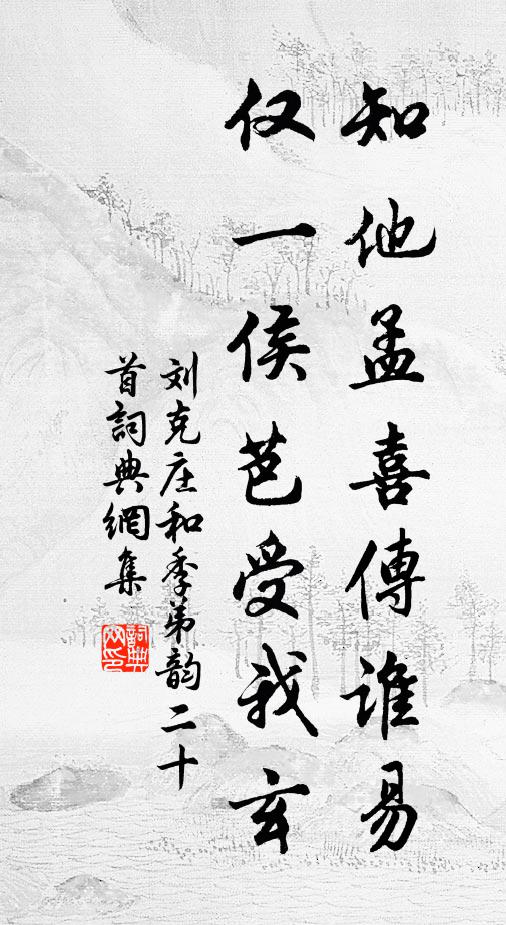 知他孟喜傳誰易
仅一侯芭受我玄
刘克庄和季弟韵二十
首詞典網集
詞典
网印